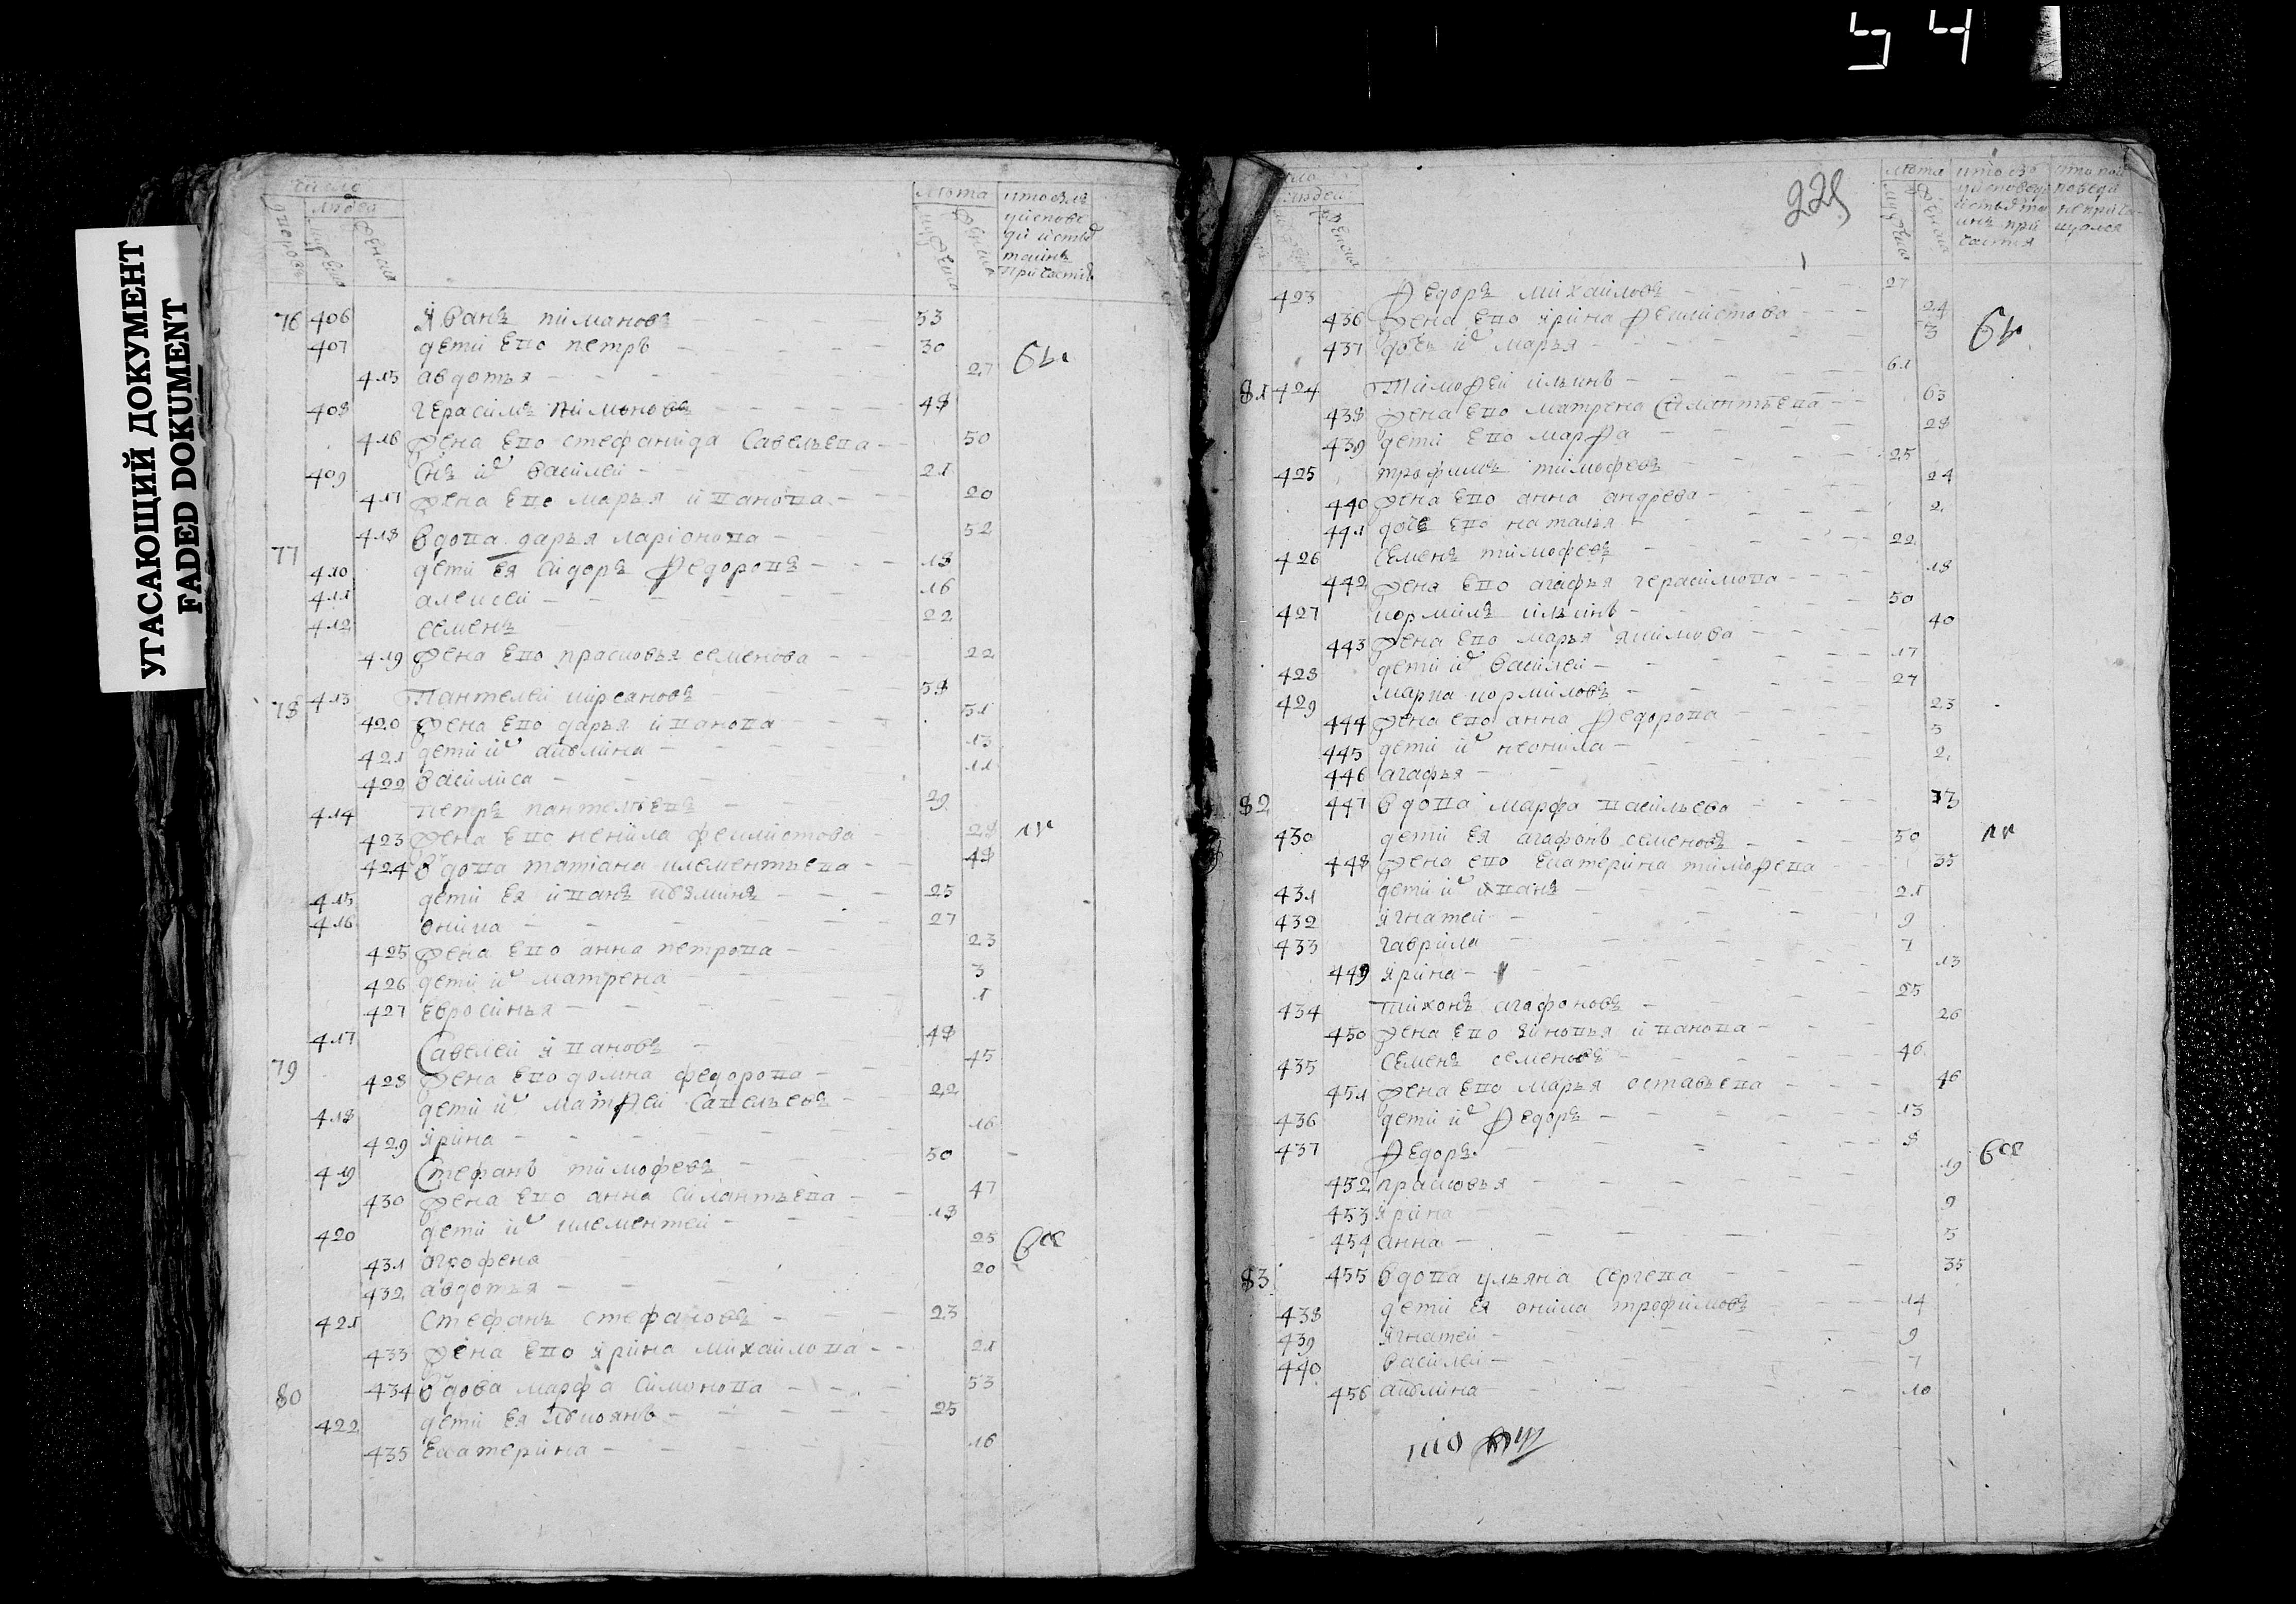 УГАСАЮЩИЙ ДОКУМЕНТ
FADED DOKUMENT
число
людей
лѣта
76 406 Иванъ пимановъ 53
407 дети ево петръ 30
415 авдотья 27
408 герасимъ пимановъ 48
416 жена ево стефанида савельева 50
409 снъ их василей 21
417 жена ево марья иванова 20
77 418 вдова дарья ларіонова 52
410 дети ея сидоръ федоровъ 18
411 алексей 16
412 семенъ 22
419 жена ево прасковья семенова 22
78 413 Пантелей кирсановъ 58
420 жена ево дарья иванова 51
421 дети их акилина 13
422 василиса 11
414 петръ пантелѣевъ 29
423 жена ево ненила феклистова 28
424 вдова татіана клементьева 48
415 дети ея иванъ козминъ 25
416 еким 27
425 жена ево анна петрова 23
426 дети их матрена 3
427 евросинья 1
79 417 Савелей Ивановъ 48
428 жена ево домна федорова 45
418 дети их матфей савельевъ 22
429 Ирина 16
419 Стефанъ тимофевъ 50
430 жена ево анна силантьева 47
420 дети их клементей 18
431 агрофена 25
432 авдотья 20
421 Стефанъ стефановъ 23
433 жена ево Ирина михаилова 21
80 434 вдова марфа симонова 53
422 дети ея 25
435 екатерина 16
225
423 Федоръ михаиловъ 27
436 жена ево Ирина феклистова 24
437 дочь их марья 3
81 424 Тимофей ильинъ 61
438 жена ево матрена силантьева 63
439 дети ево марфа 28
425 трофимъ тимофевъ 25
440 жена ево анна андрева 24
441 дочь ево наталья 2
426 семенъ тимофевъ 22
442 жена ево агафья герасимова 18
427 кормилъ ильинъ 50
443 жена ево марья якимова 40
428 дети их василей 17
429 марка кормиловъ 27
444 жена ево анна федорова 23
445 дети их неонила 5
446 агафья 2
82 447 вдова марфа васильева 73
430 дети ея агафонъ семеновъ 50
448 жена ево екатерина тимофева 35
431 дети их иванъ 21
432 Игнатей 9
433 гаврила 7
449 Ирина 13
434 тихонъ агафоновъ 25
450 жена ево зиновья иванова 26
435 семенъ семеновъ 46
451 жена ево марья остафьева 46
436 дети их Федоръ 13
437 Федоръ 8
452 прасковья 19
453 Ирина 9
454 анна 5
83 455 вдова ульяна сергева 35
438 дети ея трофимовъ 14
439 Игнатей 9
440 василей 7
456 акилина 10